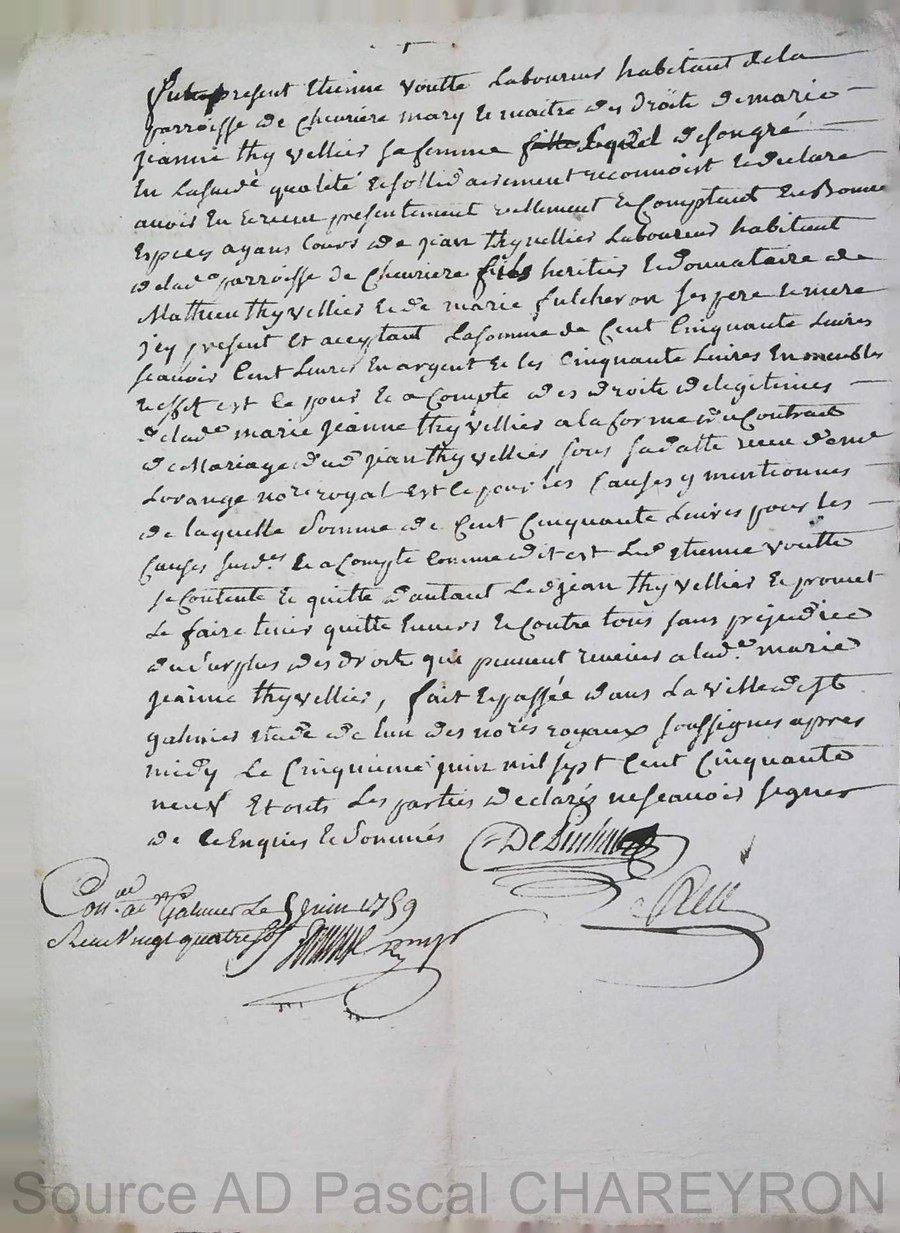 fut present Etienne voutte Laboureur habitant de la
parroisse de chevriere mary et maitre des droits de marie
jeanne thyvellier sa femme lequel de son gré
En lasusd.e qualité et sollidairement reconnoist et declare
avoir Eu et receu presentement reellement et Comptant En Bonne
Especes ayans Cours de jean thyvellier Laboureur habitant
de lad.e parroisse de chevriere fils heritier et donnataire de
Mathieu thyvellier et de marie fulcheron ses pere et mere
jcy present et aceptant La somme de Cent Cinquante Livres
scavoir Cent Livres En argent et les Cinquante Livres En meubles
et effet est ce pour et a Compte des droits de legitimes
de lad.e marie jeanne thyvellier a la forme du Contrat
de Mariage dud jean thyvellier sous sa datte receu
Lorange no.re royal est ce pour les Causes y mentionnes
de laquelle somme de Cent Cinquante Livres pour les
Causes susd.es et a Compte Comme dit est Led Etienne voutte
se Contente et quitte d'autant Led jean thyvellier et promet
Le faire tenir quitte Envers et Contre tous sans prejudice
du surplus des droits qui peuvent revenir a lad.e marie
jeanne thyvellier, fait et passée dans La ville de st
galmier Etude de l'un des no.res royaux soussignes apres
midy Le Cinquieme juin mil sept Cent Cinquante
neuf Et onts Les parties declarés ne scavoir signer
de ce Enquis et sommés
Con.lle a st Galmier Le 5 juin 1759
Receu Vingt quatre sols
Source AD Pascal CHAREYRON